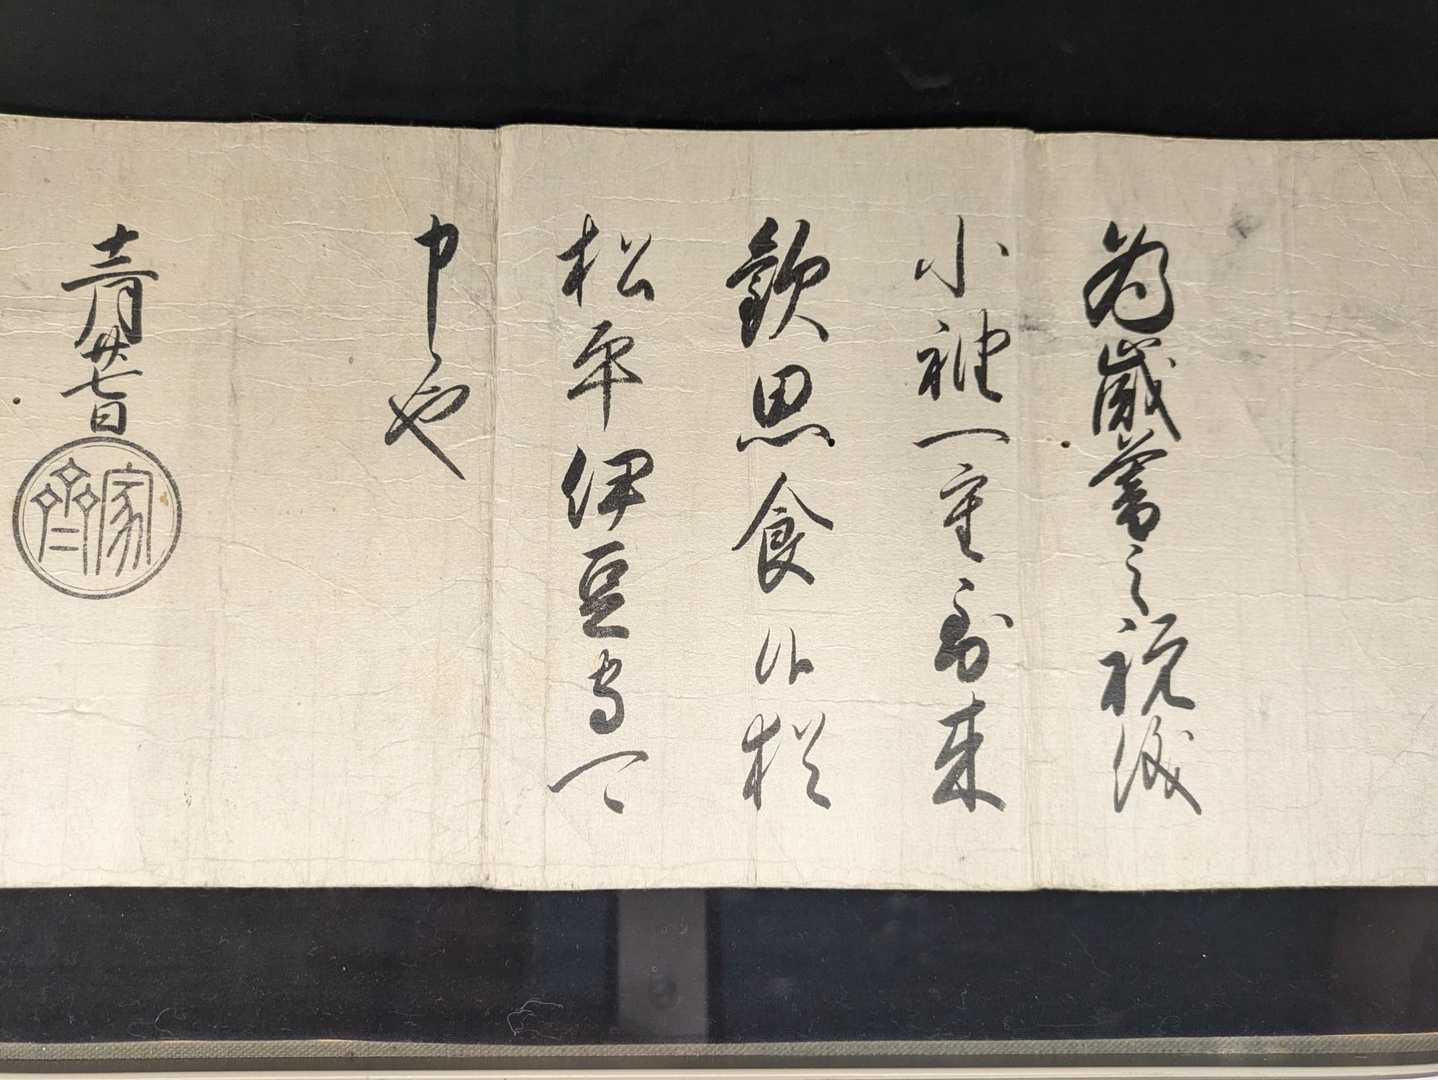 為歳暮之祝儀
小袖一重到来
歓思食候猶
松平伊豆守可
申也
十二月廿七日
家斉